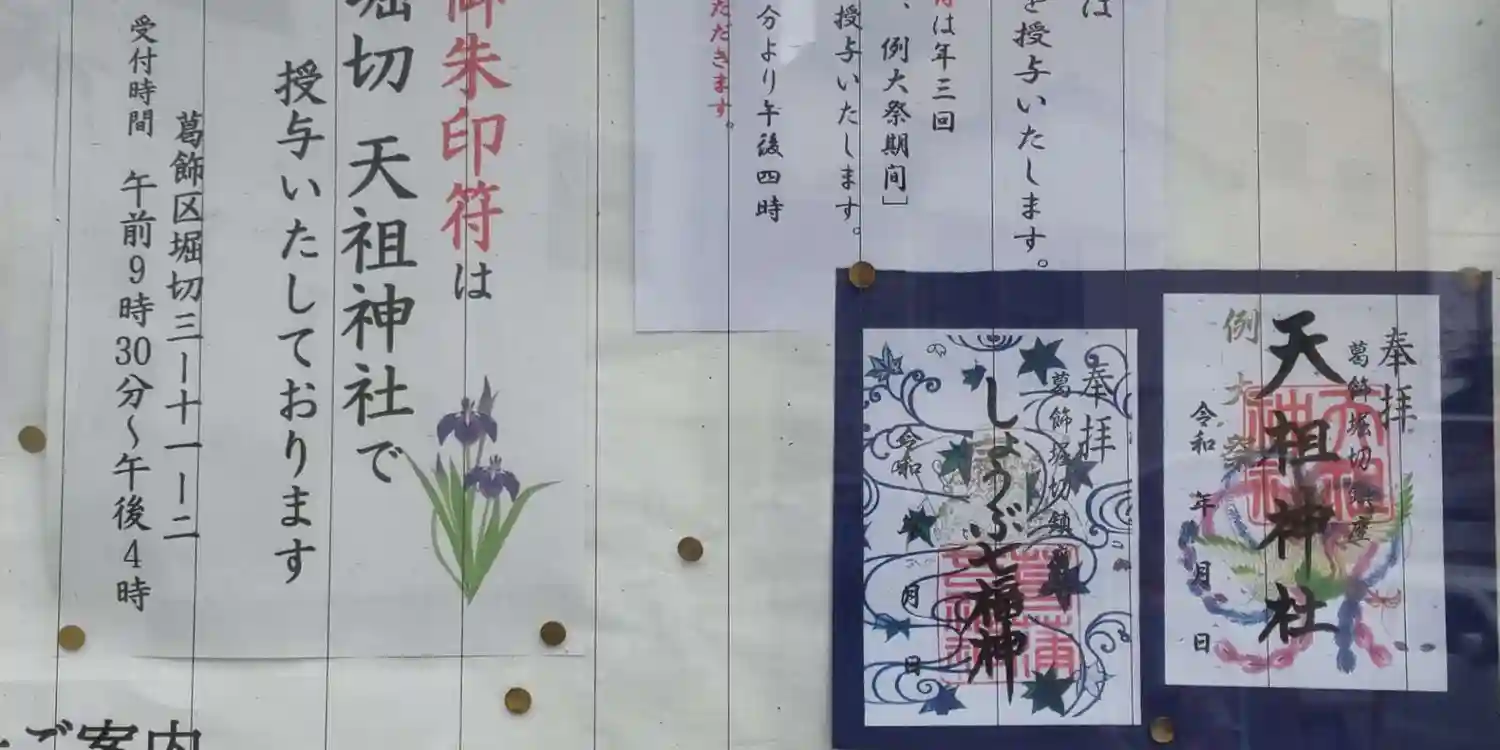 は
を授与いたします。
は年三回
、例大祭期間」
授与いたします。
分より午後四時
ただきます。
奉拝
葛飾堀切鎮座
天祖神社
例大祭
令和 年 月 日
奉拝
葛飾堀切鎮
しょうぶ七福神
令和 月 日
御朱印符は
堀切 天祖神社で
授与いたしております
葛飾区堀切三ー十一ー二
受付時間 午前9時30分〜午後4時
ご案内